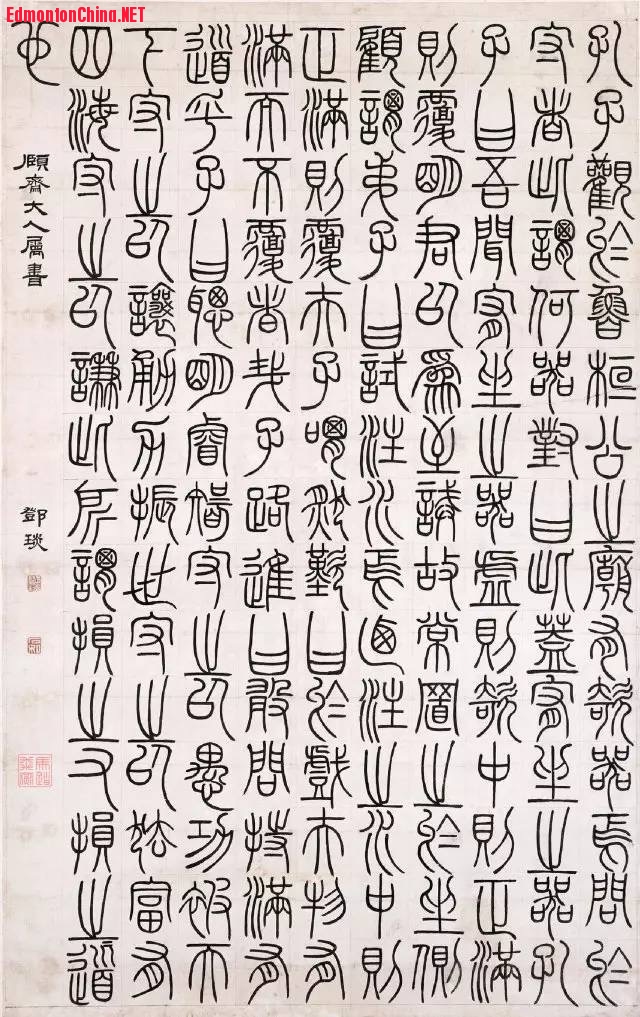 EdmontonChina.NET
孔子觀於魯桓公之廟有欹器焉問於
守者此謂何器對曰此蓋宥坐之器孔
子曰吾聞宥坐之器虛則欹中則正滿
則覆明君以為至誡故常置之於坐側
顧謂弟子曰試注水焉迺注之水中則
正滿則覆夫子喟然歎曰於戲夫物有
滿而不覆者哉子路進曰敢問持滿有
道乎子曰聰明睿智守之以愚功被天
下守之以讓勇力振世守之以怯富有
四海守之以謙此所謂損之又損之道
也
頤齋大人屬書
鄧琰